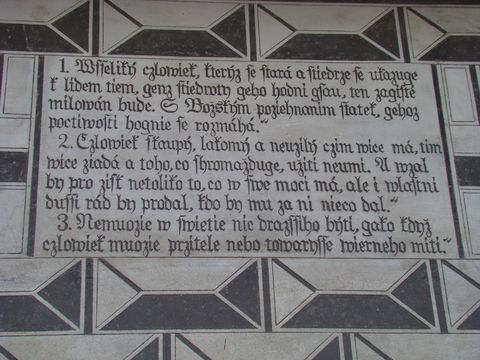 1. Wsseliký czlowiek, kterýz se stará a sstiedrze se ukazuge
k lidem tiem, genz sstiedroty geho hodni gsau, ten zagisté
milowán bude. S Bozským poziehnanim statek, gehoz
poctiwosti hognie se rozmáhá.“
2. Czlowiek skaupý, lakomý a neuzilý czim wice má, tim
wice ziadá a toho, co shromazduge, užiti neumi. A wzal
by pro zisk netoliko to, co w swe moci má, ale i wlastni
dussi rád by prodal, kdo by mu za ni nieco dal.“
3. Nemuozie w swietie nic drazssiho býti, gako když
czlowiek muozie przitele nebo towarysse wierneho miti.“